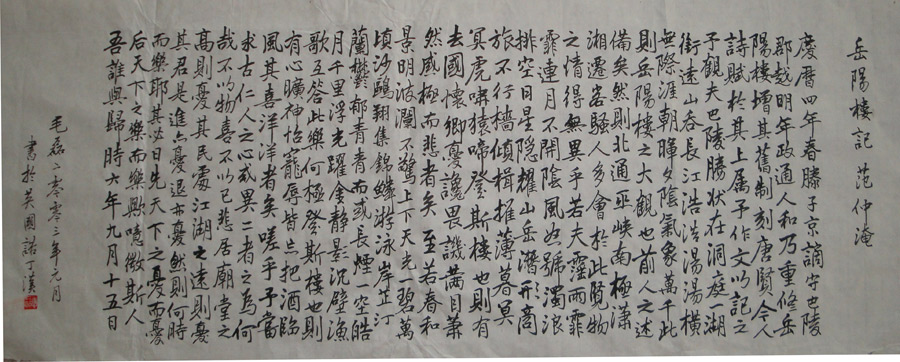 岳陽樓記 范仲淹
慶曆四年春滕子京謫守巴陵
郡越明年政通人和乃重修岳
陽樓增其舊制刻唐賢今人
詩賦於其上属予作文以記之
予觀夫巴陵勝狀在洞庭湖
銜遠山吞長江浩浩湯湯橫
無際涯朝暉夕陰氣象萬千此
則岳陽樓之大觀也前人之述
備矣然則北通巫峽南極瀟
湘遷客騷人多會於此覽物
之情得無異乎若夫霪雨霏
霏連月不開陰風怒號濁浪
排空日星隱耀山岳潛形商
旅不行檣傾楫摧薄暮冥
冥虎嘯猿啼登斯樓也則有
去國懷鄉憂讒畏譏滿目蕭
然感極而悲者矣 至若春和
景明波瀾不驚上下天光一碧萬
頃沙鷗翔集錦鱗游泳岸芷汀
蘭鬱郁青青而或長煙一空皓
月千里浮光躍金静影沉璧漁
歌互答此樂何極登斯樓也則
有心曠神怡寵辱皆忘把酒臨
風其喜洋洋者矣嗟乎予嘗
求古仁人之心或異二者之為何
哉不以物喜不以已悲居廟堂之
高則憂其民處江湖之遠則憂
其君是進亦憂退亦憂然則何時
而樂耶其必曰先天下之憂而憂
后天下之樂而樂歟噫微斯人
吾誰與歸時六年九月十五日
毛磊二零零三年元月
書於英國諾丁漢